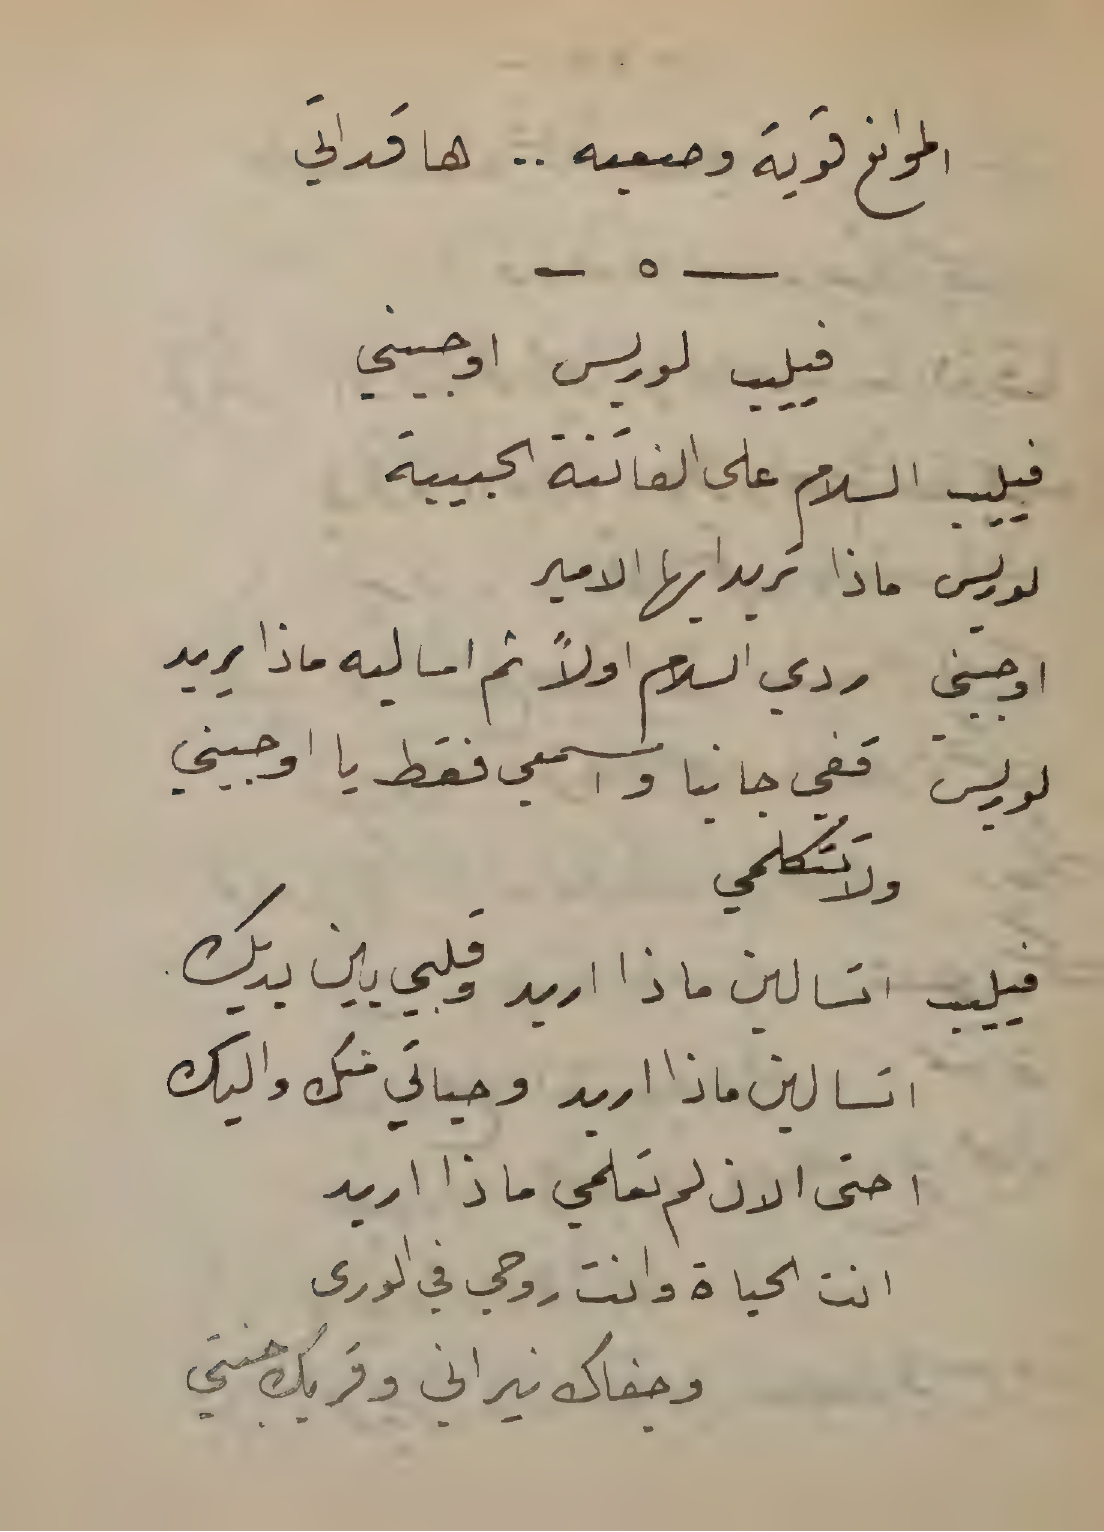 الموانع قوية وصعبه .. ها قد اتى
— ٥ —
فيليب لوريس اوجيني
فيليب السلام على الفاتنة الحبيبة
لوريس ماذا تريد ايها الامير
اوجيني ردي السلام اولاً ثم اساليه ماذا يريد
لوريس قفي جانبا واسمعي فقط يا اوجيني
ولا تتكلمي
فيليب اتسالين ماذا اريد وقلبي بين يديك
اتسالين ماذا اريد وحياتي منك واليك
احتى الان لم تعلمي ماذا اريد
انت الحياة وانت روحي في الورى
وجفاك نيراني وقربك جنتي